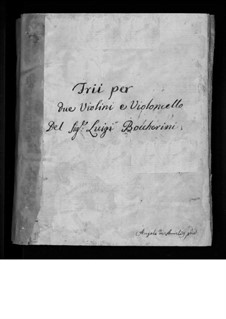 Trii per
due Violini e Violoncello
Del Sig.r Luigi Boccherini.
Angelo